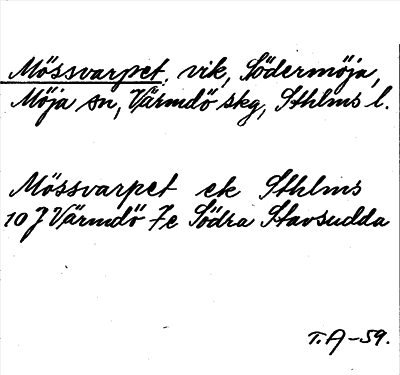 Mössvarpet, vik, Södermöja,
Möja sn, Värmdö skg, Sthlms l.
Mössvarpet ek Sthlms
10 J Värmdö 7e Södra Stavsudda
T.A-59.